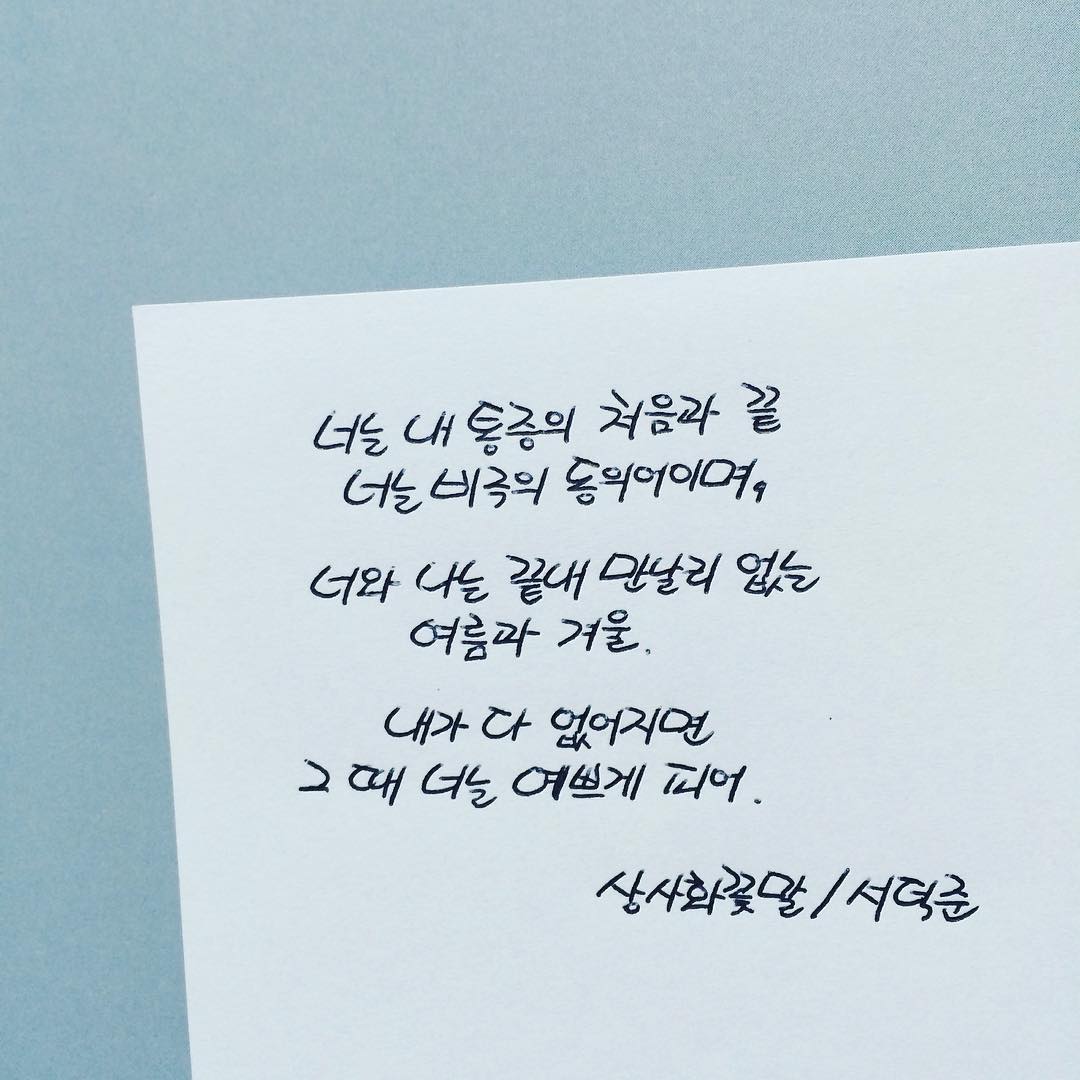 너는 내 통증의 처음과 끝
너는 비극의 동의어이며,
너와 나는 끝내 만날리 없는
여름과 겨울.
내가 다 없어지면
그 때 너는 예쁘게 피어.
상사화꽃말/서덕준